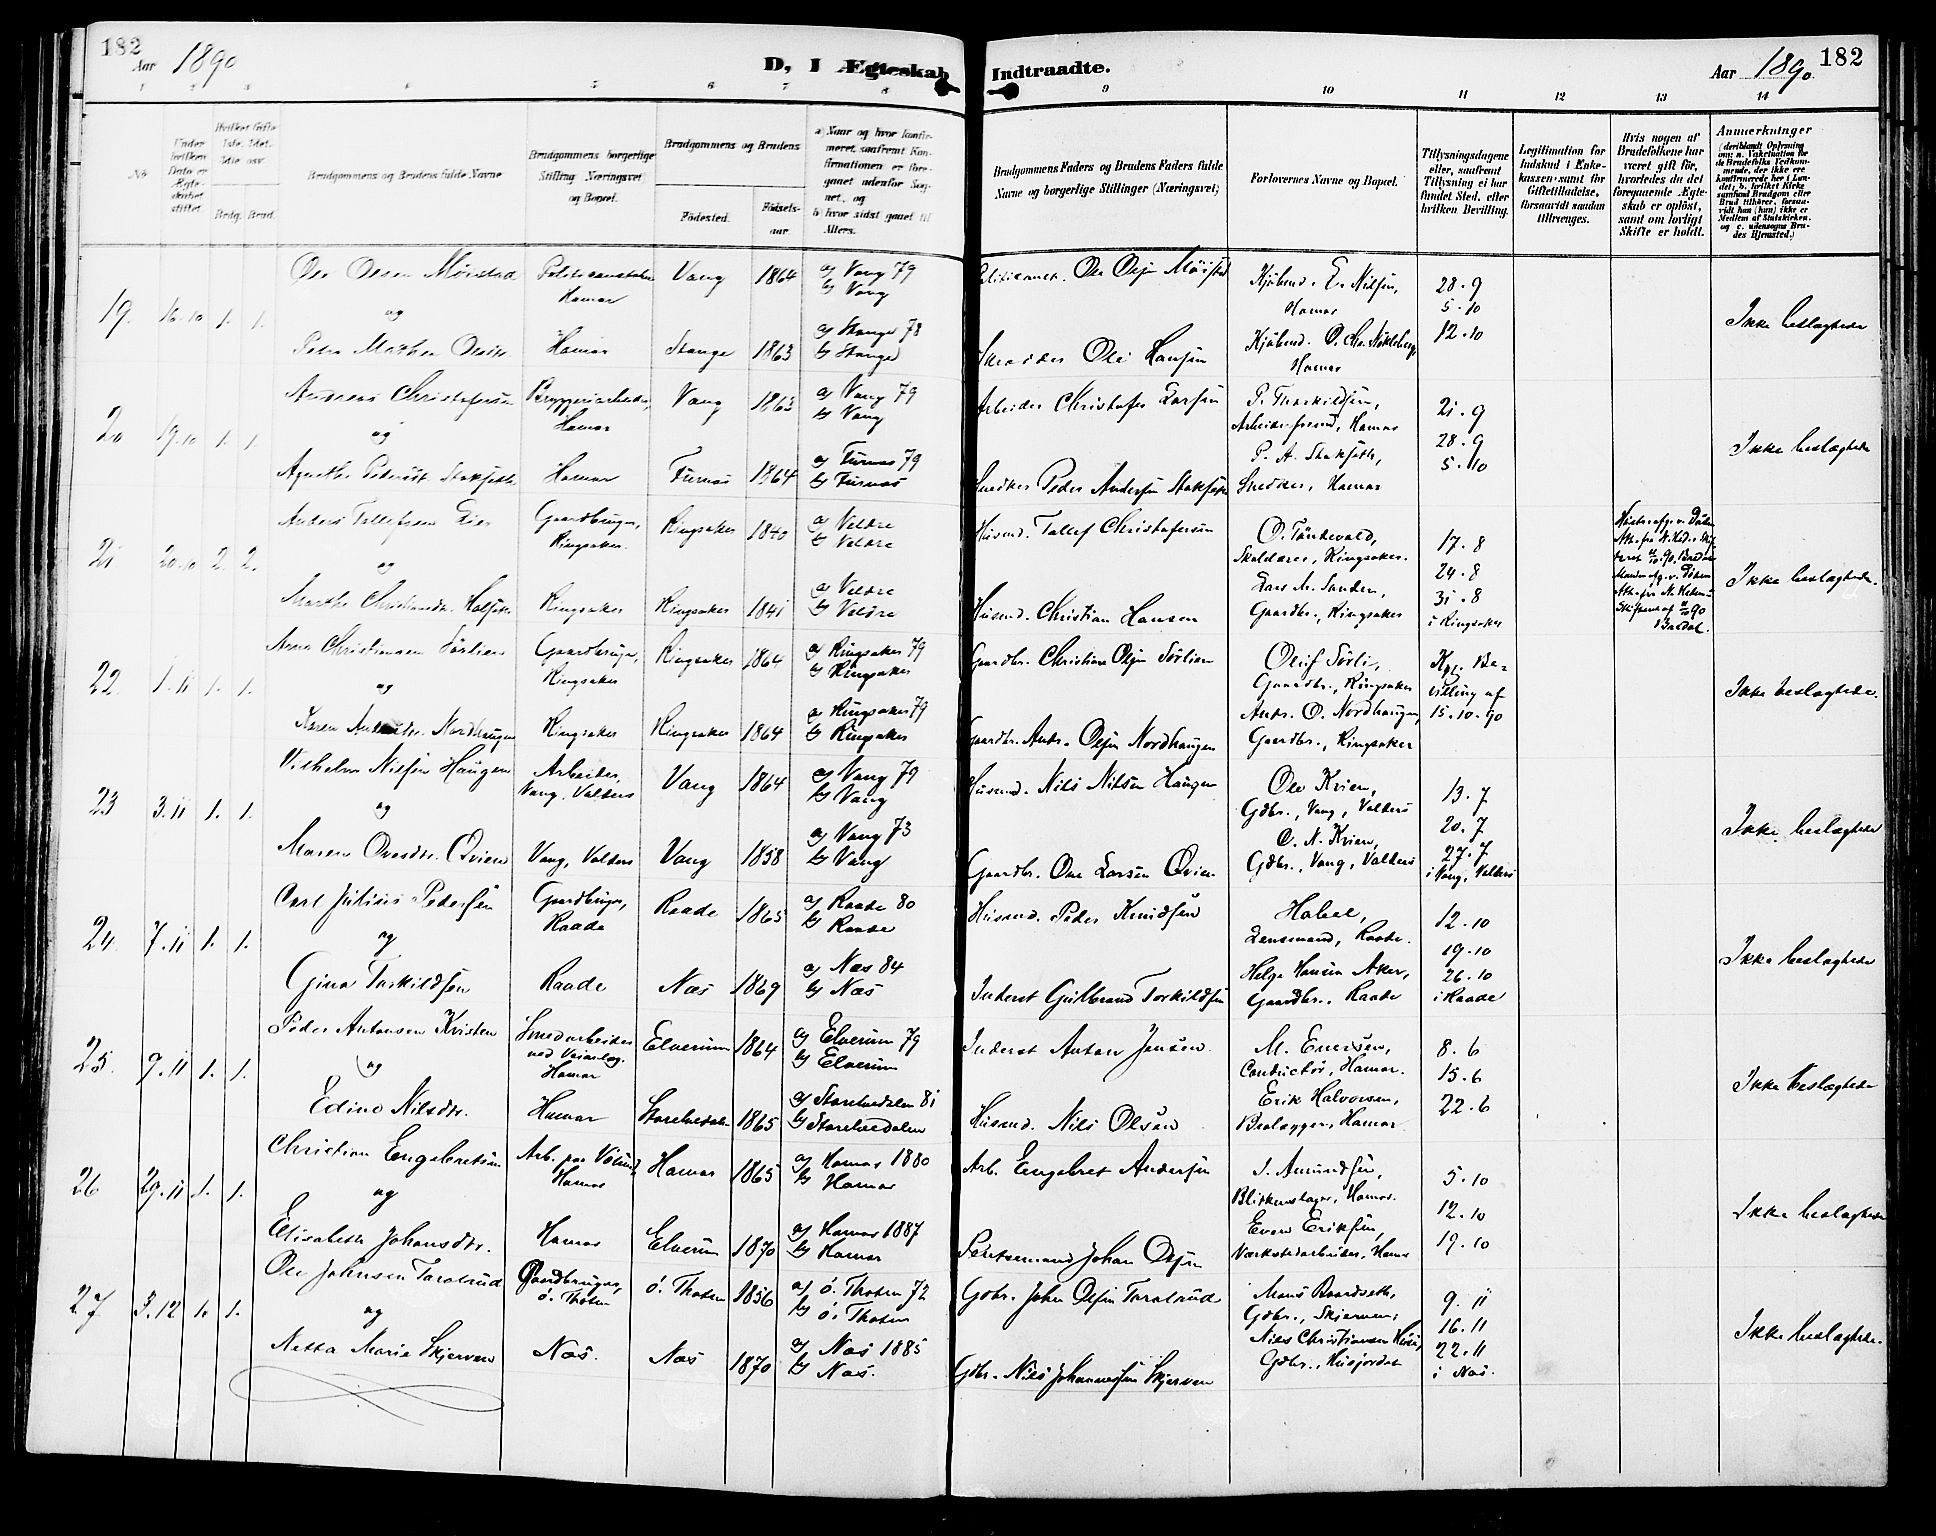 182
Aar 1890
D, I Ægteskab Indtraadte.
Aar 1890. 182
1 2 3 4 5 6 7 8 9 10 11 12 13 14
No
Under hvilken Dato er Ægteskabet stiftet.
Hvilket Gifte 1ste, 2det, 3die osv.
Brdg. Brud.
Brudgommens og Brudens fulde Navne
Brudgommens borgerlige Stilling Næringsvei og Bopæl.
Brudgommens og Brudens
Fødested.
Fødselsaar.
a) Naar og hvor konfirmeret, saafremt Konfirmationen er foregaaet udenfor Sognet, og
b) hvor sidst gaaet til Alters.
Brudgommens Faders og Brudens Faders fulde Navne og borgerlige Stillinger (Næringsvei)
Forlovernes Navne og Bopæl.
Tillysningsdagene eller, saafremt Tillysning ei har fundet Sted, efter hvilken Bevilling.
Legitimation for Indskud i Enkekassen samt for Giftetilladelse, forsaavidt saadan tiltrænges.
Hvis nogen af Brudefolkene har været gift før, hvorledes da det foregaaende Ægteskab er opløst, samt om lovligt Skifte er holdt.
Anmærkninger
(deriblandt Oplysning om: a. Vakcination for de Brudefolks Vedkommende, der ikke ere konfirmerede her i Landet; b. hvilket Kirkesamfund Brudgom eller Brud tilhører, forsaavidt han (hun) ikke er Medlem af Statskirken, og c. udensogns Brudes Hjemsted.)
19. 16.10 1. 1.
Ole Olsen Møistad
Hamar
Vang 1864
a) Vang 79
b) Vang
Ole Olsen Møistad
Kjøbmd. E. Nilsen,
Hamar
28.9
5.10
12.10
Ikke beslægtede
og
Hamar Stange 1863
a) Stange 78
b) Stange
Ole Hansen
Kjøbmd. O. Chr.
Hamar
20 19.10 1. 1.
Andreas Christofersen
Bryggeriarbeider,
Hamar
Vang 1863
a) Vang 79
b) Vang
Arbeider Christofer Larsen
P. Thorkildsen,
Hamar
21.9
28.9
5.10
Ikke beslægtede
og
Hamar Furnæs 1864
a) Furnæs 79
b) Furnæs
Snedker Peder Andersen
P. A.
Snedker, Hamar
21 20.10 2. 2.
Anders Tollefsen
Gaardbruger,
Ringsaker.
Ringsaker 1840
a) Veldre
b) Veldre
Husmd. Tollef Christofersen
O. Tandevold,
Skoldarer, Ringsaker.
17.8
24.8
31.8
i Ringsaker
Ikke beslægtede.
og
Marthe Christiansdtr.
Ringsaker Ringsaker 1841
a) Veldre
b) Veldre
Husmd. Christian Hansen
Lars M. Sanden,
Gaardbr., Ringsaker
22. 1.11 1. 1.
Arne Christiansen Sørlien
Gaardbruger,
Ringsaker
Ringsaker 1864
a) Ringsaker 79
b) Ringsaker
Gaardbr. Christian Olsen Sørlien
Oluf Sørli,
Gaardbr., Ringsaker
Kgl. Be-
villing af
15.10.90
Ikke beslægtede.
og
Karen Nordhaugen
Ringsaker Ringsaker 1864
a) Ringsaker 79
b) Ringsaker
Gaardbr. Andr. Olsen Nordhaugen
Andr. O. Nordhaugen,
Gaardbr., Ringsaker
23 3.11 1. 1.
Vilhelm Nilsen Haugen
Arbeider,
Vang, Valders
Vang 1864
a) Vang 79
b) Vang
Husmd. Nils Nilsen Haugen
Ole Kvien,
Gdbr., Vang, Valders
13.7
20.7
27.7
i Vang, Valders
Ikke beslægtede
og
Maren Ovesdtr. Qvien
Vang, Valders Vang 1858
a) Vang 73
b) Vang
Gaardbr. Ove Larsen Qvien
O. N. Kvien,
Gdbr., Vang, Valders
24. 7.11 1. 1.
Carl Julius Pedersen
Gaardbruger,
Raade
Raade 1865
a) Raade 80
b) Raade
Husmd. Peder Knudsen
Habel,
Lensmand, Raade.
12.10
19.10
26.10
i Raade
Ikke beslægtede
og
Gina Torkildsen
Raade Næs 1869
a) Næs 84
b) Næs
Inderst Gulbrand Torkildsen
Helge Hansen Aker,
Gaardbr., Raade
25. 9.11 1. 1.
Peder Antonsen Kvisten
Smedarbeider
Hamar
Elverum 1864
a) Elverum 79
b) Elverum
Inderst Anton Jensen.
M. Evensen,
Conductør, Hamar.
8.6
15.6
22.6
Ikke beslægtede
og
Nilsdtr.
Hamar Storelvedalen 1865
a) Storelvedalen 81
b) Storelvedalen
Husmd. Nils Olsen
Erik Halvorsen,
Hamar
26 29.11 1. 1.
Christian Engebretsen
Hamar
Hamar 1865
a) Hamar 1880
b) Hamar
Arb. Engebret Andersen
Amundsen,
Blikkenslager, Hamar.
5.10
12.10
19.10
Ikke beslægtede
og
Elisabeth Johansdtr.
Hamar Elverum 1870
a) Hamar 1887
b) Hamar
Johan Olsen
Even Eriksen,
Værkstedarbeider, Hamar
27 3.12 1. 1.
Ole Johnsen Taralrud
Gaardbruger,
Ø. Thoten
Ø. Thoten 1856
a) Ø. Thoten 72
b) Ø. Thoten
Gdbr. John Olsen Taralrud
Mons Baardseth,
Gdbr., Skjerven;
9.11
16.11
22.11
i Næs.
Ikke beslægtede.
og
Netta Marie Skjerven
Næs. Næs 1870
a) Næs 1885
b) Næs.
Gdbr. Nils Johannesen Skjerven
Nils Christiansen
Gdbr., Husjordet